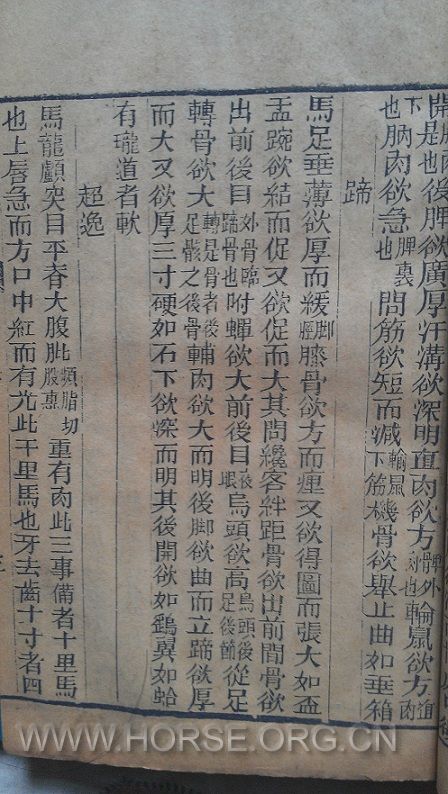 開是也後髀欲廣厚汗溝欲深明直肉欲方髀外肉也輸鼠欲方直肉下
也肭肉欲急髀裏也間筋欲短而減輸鼠下筋機骨欲舉止曲如垂箱
蹄
馬足垂薄欲厚而緩腳脛膝骨欲方而痺又欲得圓而張大如盃
盂踠欲結而促又欲促而大其間纔容絆距骨欲出前間骨欲
出前後目外骨臨蹄骨也附蟬欲大前後目後眼烏頭欲高烏頭後足後節從足
轉骨欲大轉是骨者後足骸之後骨輔肉欲大而明後脚欲曲而立蹄欲厚
而大又欲厚三寸硬如石下欲深而明其後開欲如鷂翼如蛤
有瓏道者軟
超逸
馬龍顱突目平脊大腹肶頻脂切股惠重有肉此三事備者十里馬
也上唇急而方口中紅而有光此千里馬也牙去齒十寸者四
WWW.HORSE.ORG.CN